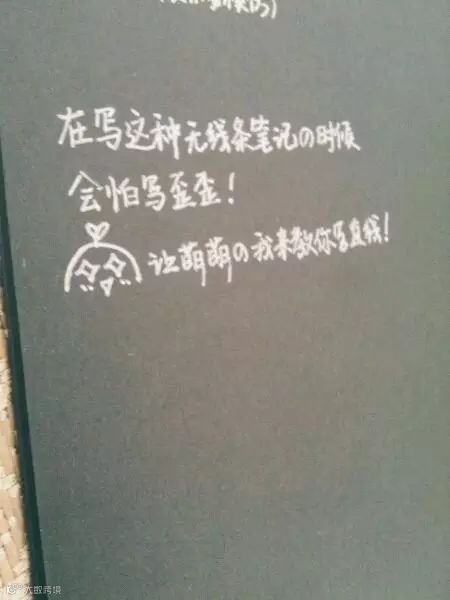 在写这种无线条笔记の时候
会怕写歪歪!
让萌萌の我来教你写直线!
大数跨境